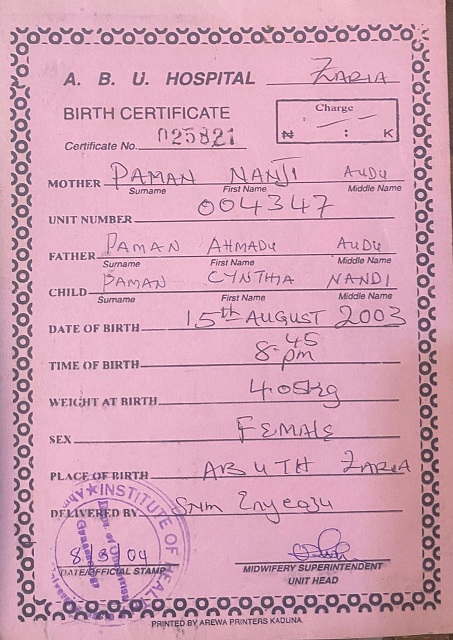 A. B. U. HOSPITAL ZARIA
BIRTH CERTIFICATE
Charge
₦ : K
Certificate No. 025821
MOTHER PAMAN NANJI AUDU
Surname First Name Middle Name
UNIT NUMBER 004347
FATHER PAMAN AHMADU AUDU
Surname First Name Middle Name
CHILD PAMAN CYNTHIA NANDI
Surname First Name Middle Name
DATE OF BIRTH 15th AUGUST 2003
TIME OF BIRTH 8.45 pm
WEIGHT AT BIRTH 4.05kg
SEX FEMALE
PLACE OF BIRTH ABUTH ZARIA
DELIVERED BY
INSTITUTE OF HEALTH
8 3 04
DATE/OFFICIAL STAMP
MIDWIFERY SUPERINTENDENT
UNIT HEAD
PRINTED BY AREWA PRINTERS KADUNA.